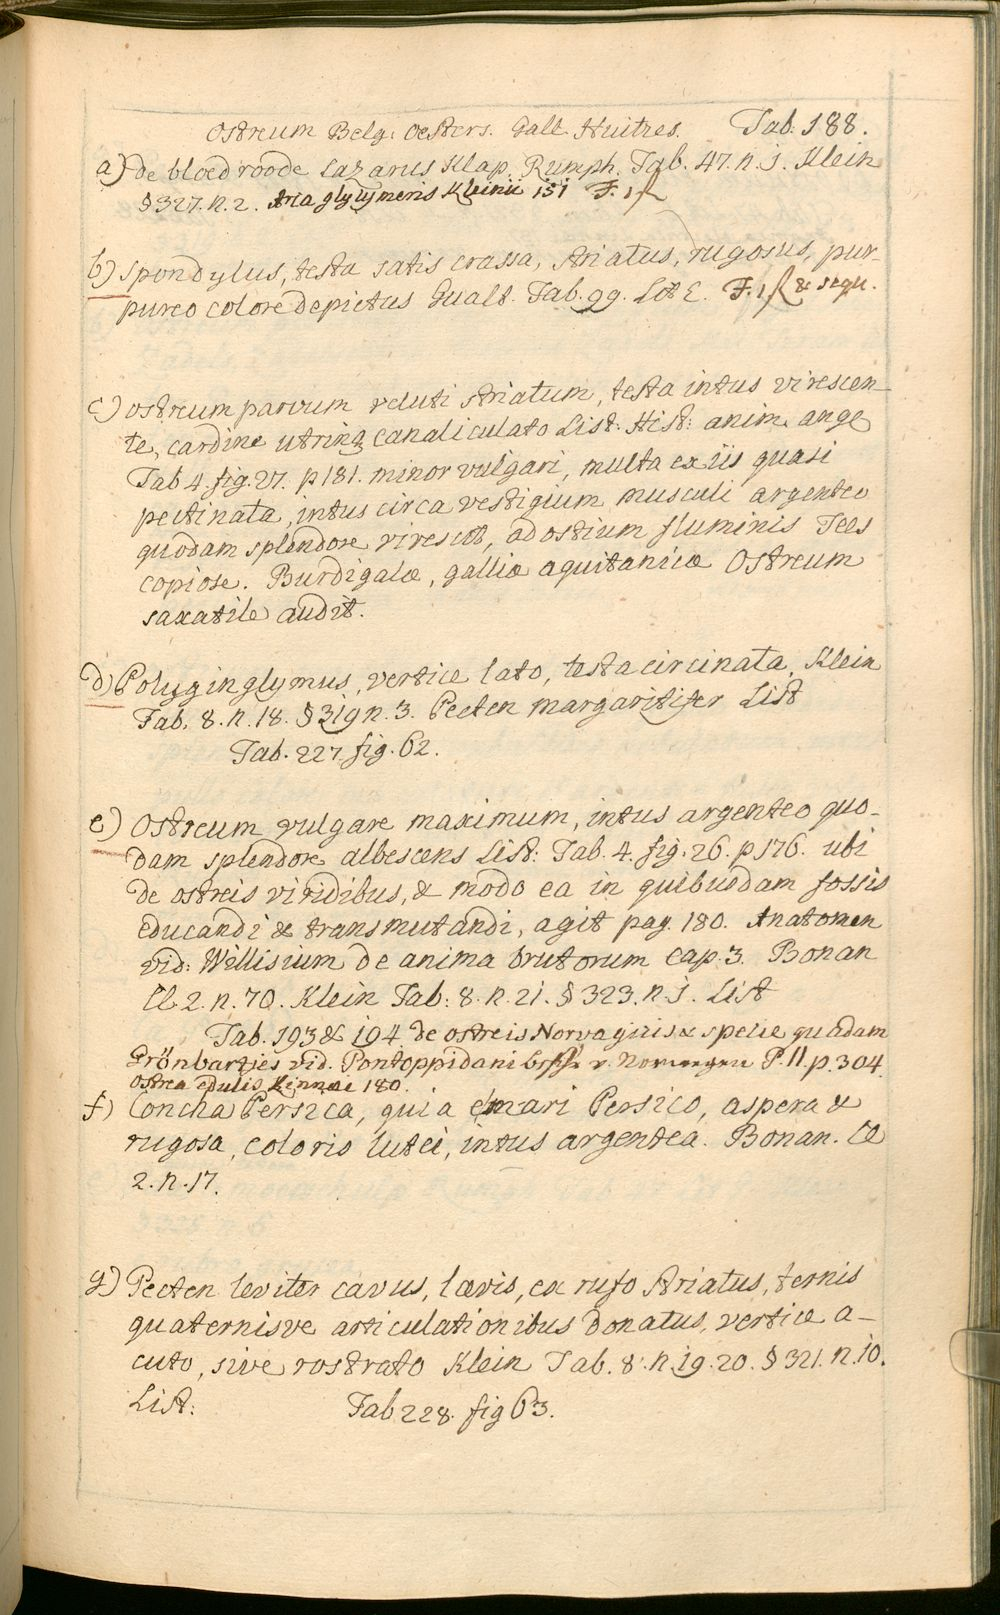 Ostreum Belg: Oesters. Gall. Huitres. Tab. 188.
a) de bloed roode Lazarus Klap. Rumph. Tab. 47. n. 1. Klein
§ 327. n. 2. Aria glycymeris Kleinii 151 F. 1
b) Spondylus, testa satis crassa, striatus, rugosus, pur-
pureo colore depictus Gualt. Tab. 99. Lit E. F. 1 & sequ.
c) ostreum parvum veluti striatum, testa intus virescen-
te, cardine utrinq canaliculato List. Hist: anim. ange
Tab 4. fig. 27. p 181. minor vulgari, multa ex iis quasi
pectinata, intus circa vestigium musculi argenteo
quodam splendore virescit, ad ostium fluminis Tees
copiose. Burdigalæ, galliæ aquitanicæ Ostreum
saxatile audit.
d) Polyginglymus, vertice lato, testa circinata, Klein
Tab. 8. n. 18. § 319 n. 3. Pecten margaritifer List
Tab. 227. fig. 62.
e) Ostreum vulgare maximum, intus argenteo quo-
dam splendore albescens List: Tab. 4. fig. 26. p 176. ubi
de ostreis viridibus, & modo ea in quibusdam fossis
educandi & transmutandi, agit pag. 180. Anatomen
vid: Willisium de anima brutorum cap. 3. Bonan
Cl. 2. n. 70. Klein Tab: 8. n. 21. § 323. n. 1. List
Tab. 193 & 194. de ostreis Norvagicis & specie quadam
Grönbartjes vid. Pontoppidani v. Norwegen P. II. p. 304.
Ostrea edulis Linnæi 180.
f) Concha Persica, quia e mari Persico, aspera &
rugosa, coloris lutei, intus argentea. Bonan. Cl
2. n. 17.
g) Pecten leviter cavus, lævis, ex rufo striatus, ternis
quaternisve articulationibus donatus, vertice a-
cuto, sive rostrato Klein Tab. 8. n. 19. 20. § 321. n. 10.
List: Tab 228. fig 63.